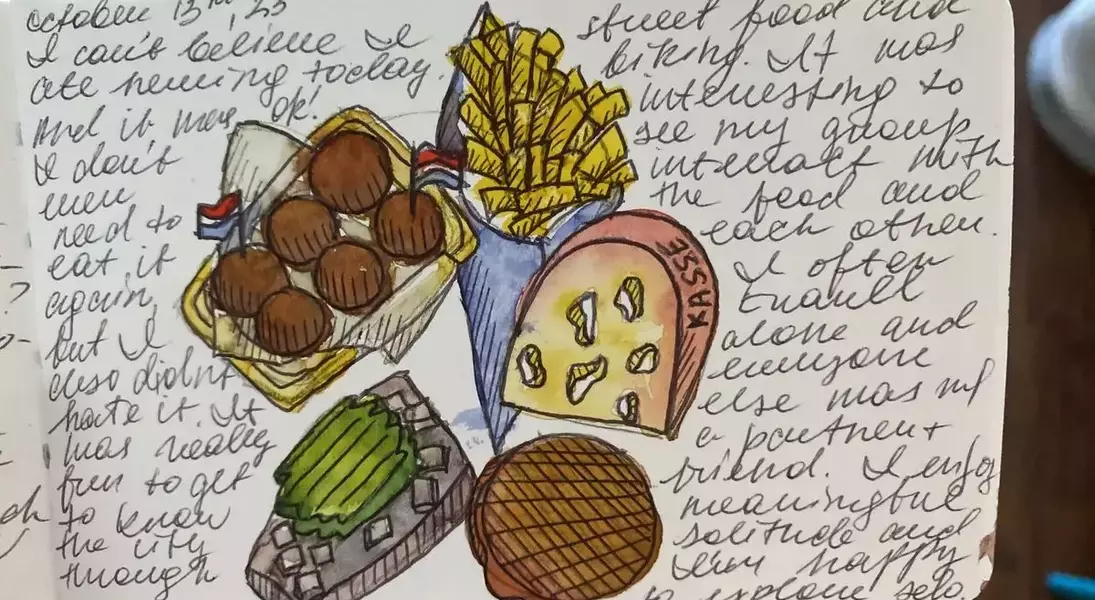 October 13th, 23
I can't believe I
ate herring today.
And it was ok!
I don't
even
need to
eat it
again,
but I
also didn't
hate it. It
was really
fun to get
to know
the city
through
street food and
biking. It was
interesting to
see my group
interact with
the food and
each other.
I often
travel
alone and
everyone
else was w/
a partner +
friend. I enjoy
meaningful
solitude and
I'm happy
to explore solo.
KASSE